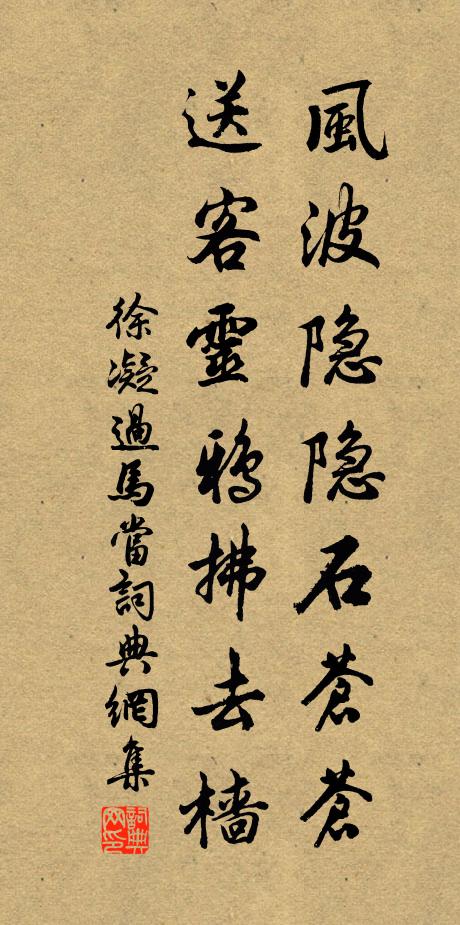 風波隐隐石蒼蒼
送客靈鴉拂去檣
徐凝過馬當詞典網集
詞典网印